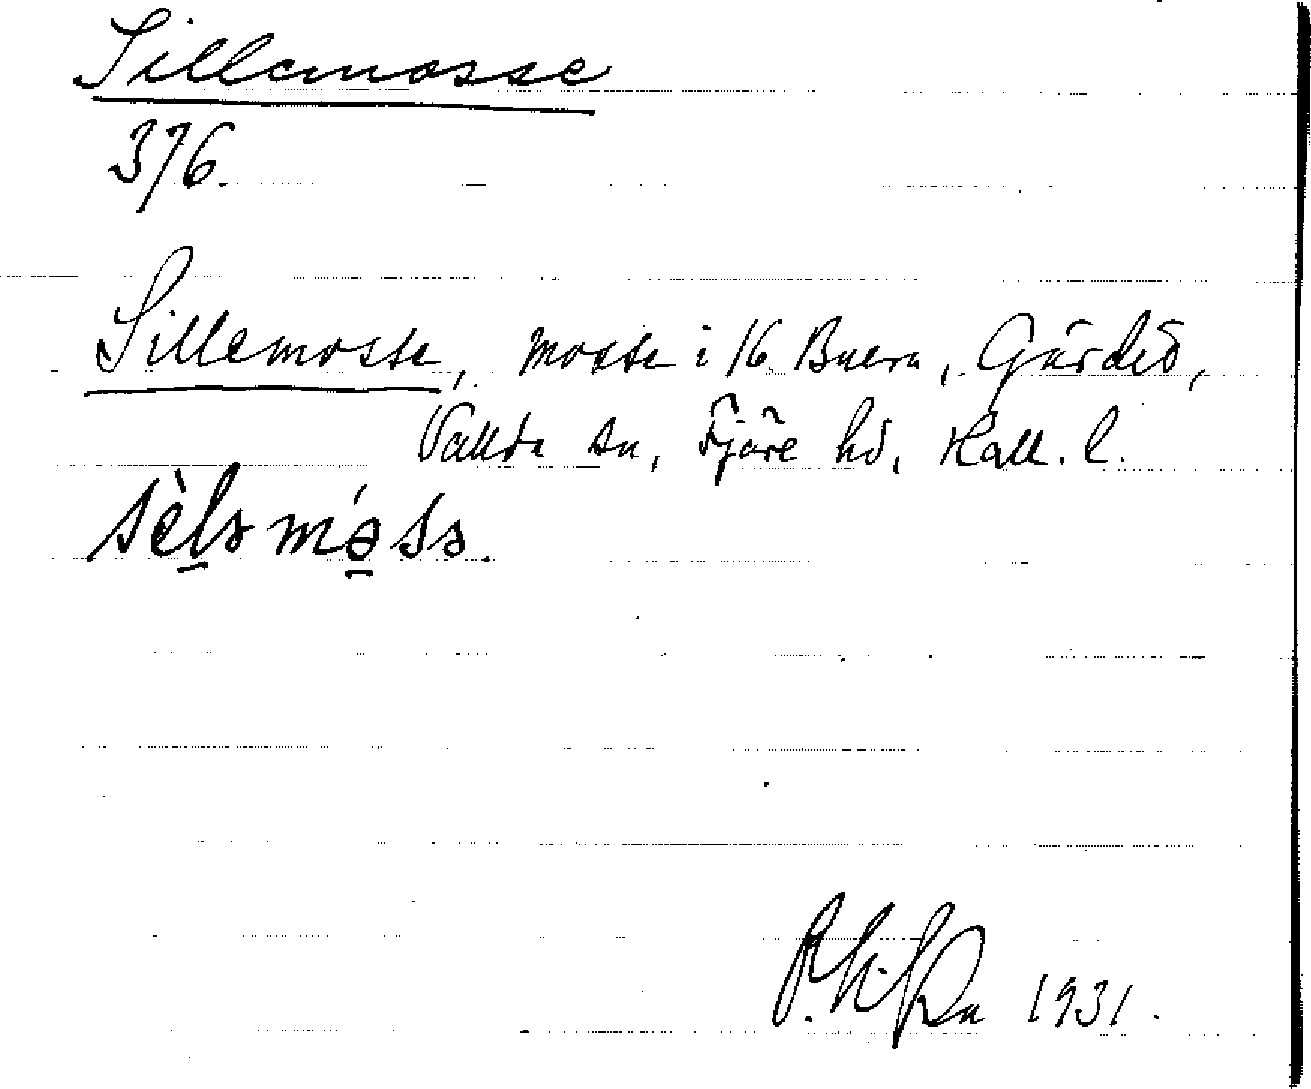 Sillemosse
376.
Sillemosse, mosse i 16 Buera, Gårdid,
Vallda sn, Fjäre hd, Hall. l.
sèlə móss.
1931.